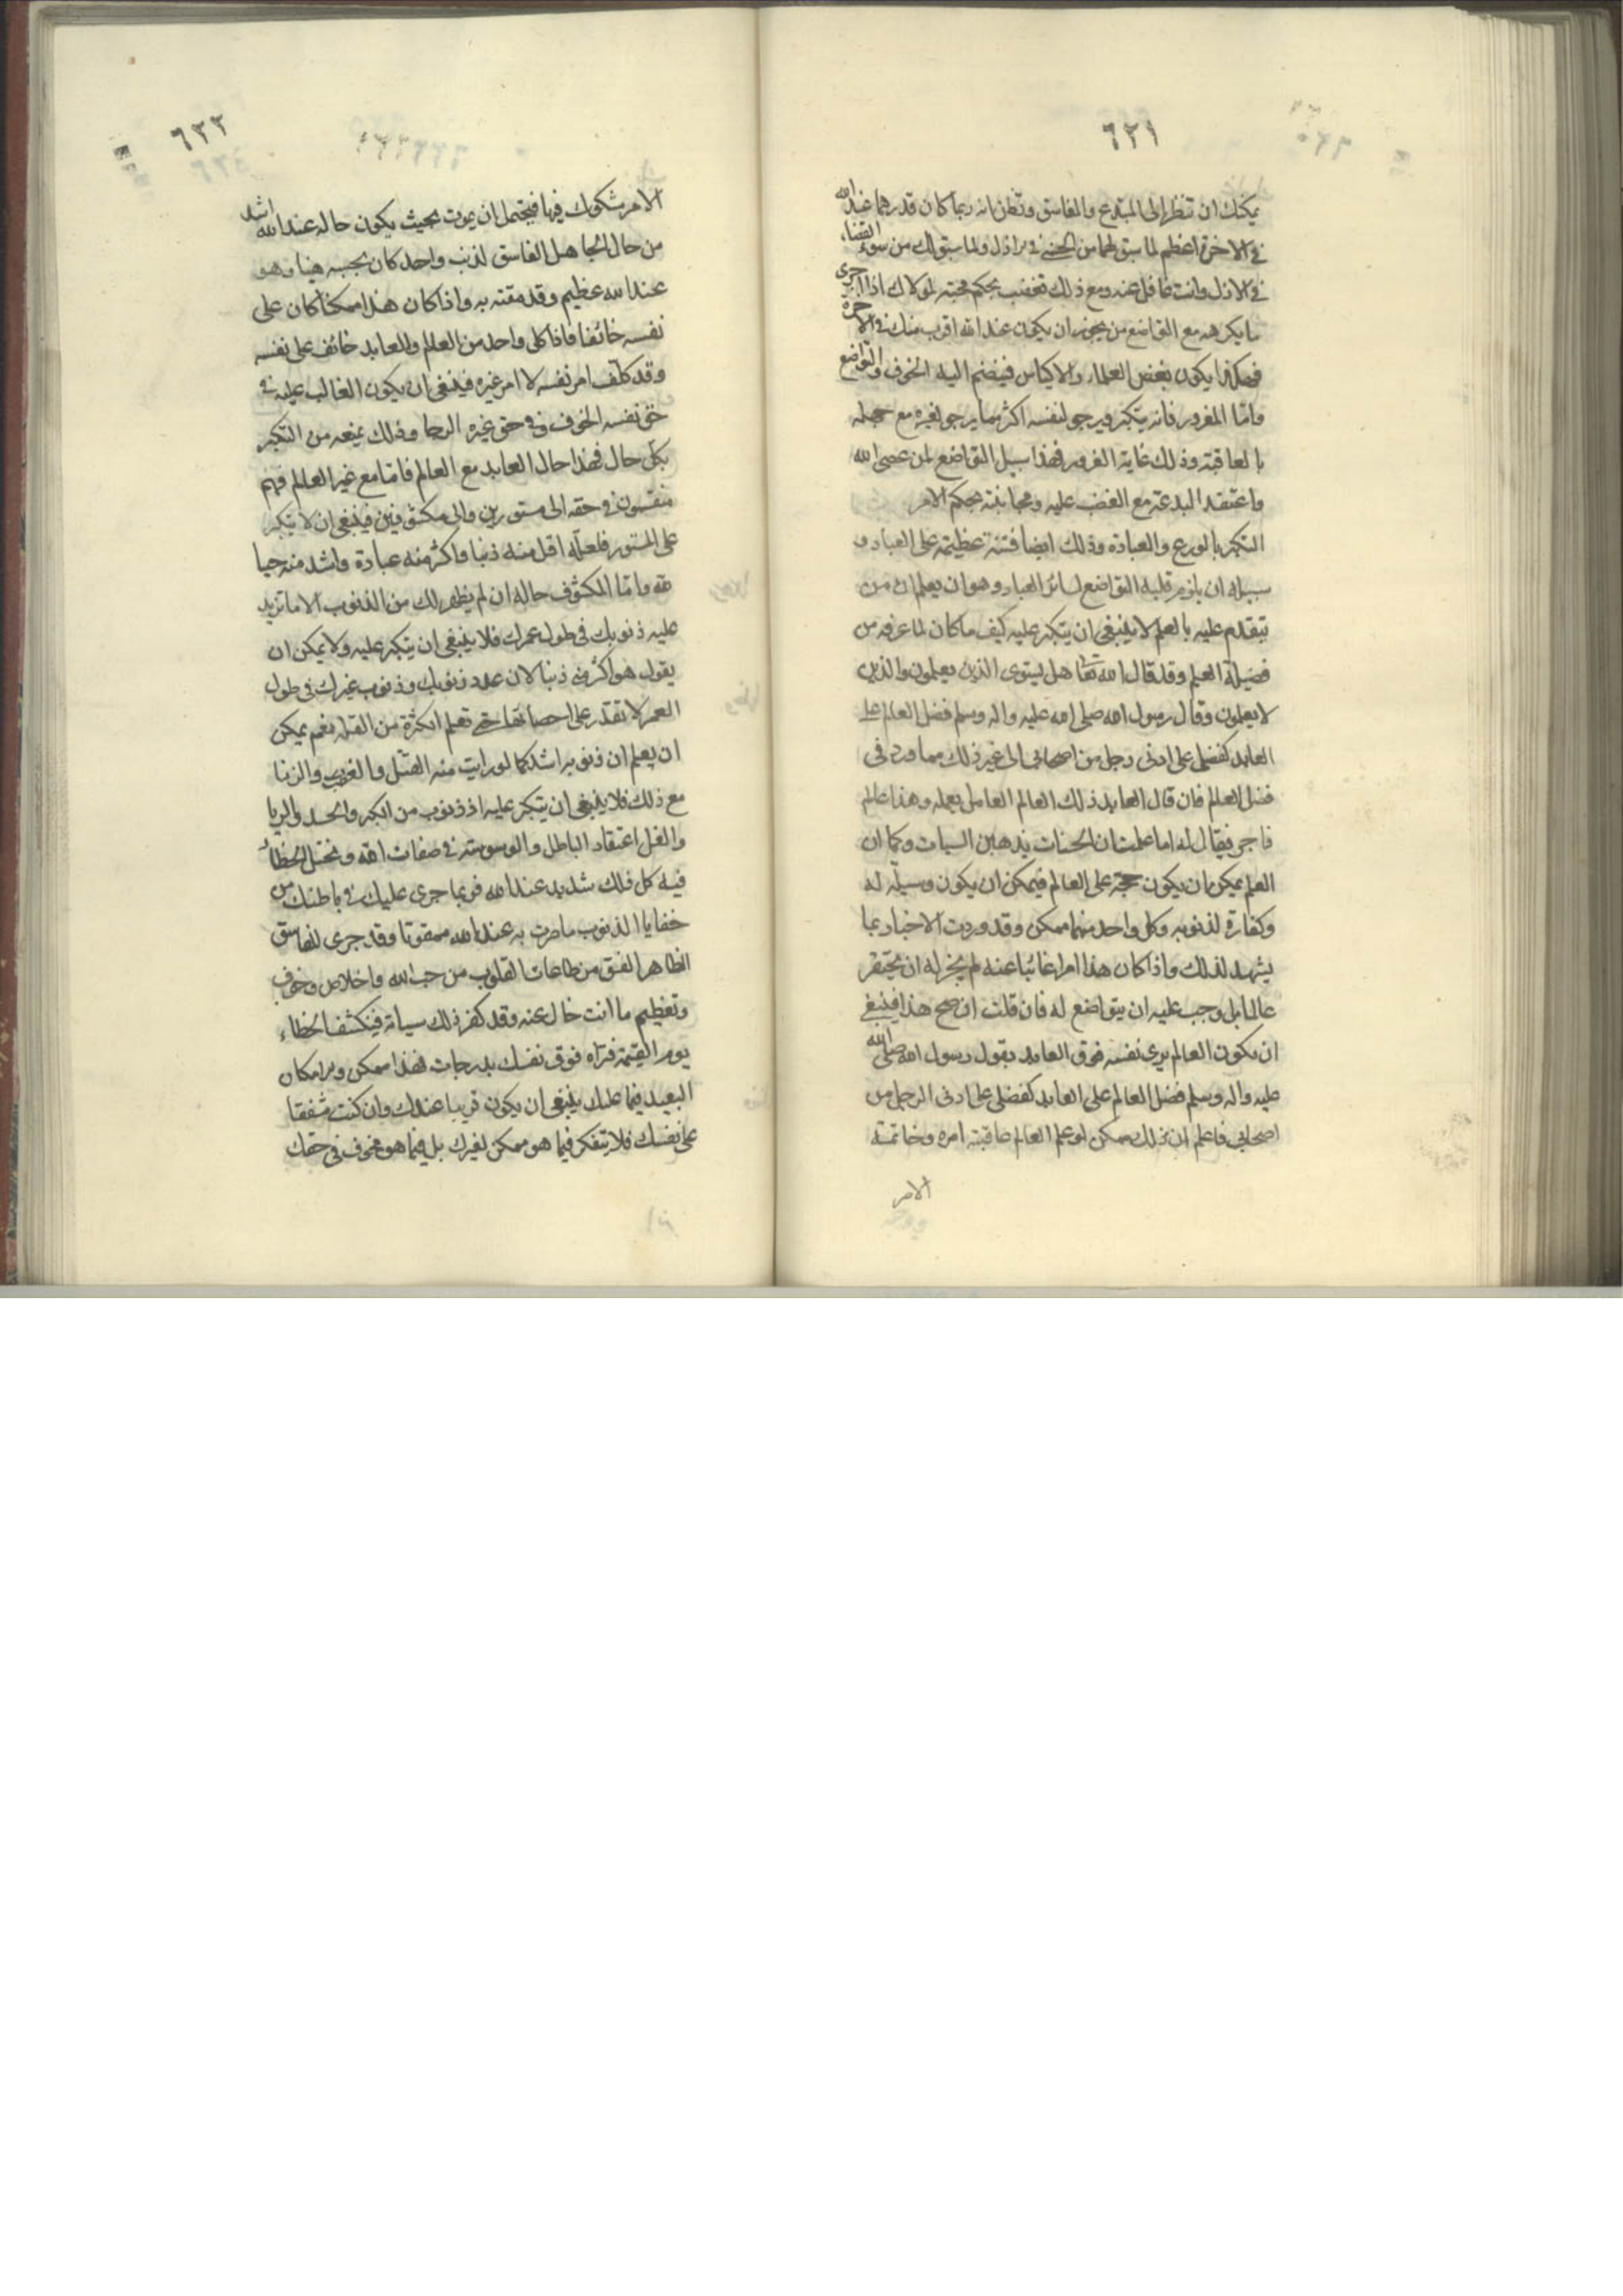 ٦٢١
يمكنك ان تنظر الى المبتدع والفاسق وتظن انه ربما كان قدرهما عند الله
فى الاخرة اعظم لما سبق لهما من الحسنى فى الازل ولما سبق لك من سوء القضاء
فى الازل وانت غافل عنه ومع ذلك تغضب بحكم محبته لمولاك اذا جرى
ما يكرهه مع التواضع من يجوز ان يكون عند الله اقرب منك فى الاخرة
فهكذا يكون بغض العلماء والاكياس فينضم اليه الخوف والتواضع
وامّا المغرور فانه يتكبر ويرجو لنفسه اكثر مما يرجو لغيره مع جهله
بالعاقبة وذلك غاية الغرور فهذا سبيل التواضع لمن عصى الله
واعتقد البدعة مع الغضب عليه ومجانبته بحكم الامر
التكبر بالورع والعبادة وذلك ايضا فتنة عظيمة على العباد و
سبيله ان يلزم قلبه التواضع لسائر العباد وهو ان يعلم ان من
يتقدم عليه بالعلم لا ينبغى ان يتكبر عليه كيف ما كان لما عرفه من
فضيلة العلم وقد قال الله تعا هل يستوى الذين يعلمون والذين
لا يعلمون وقال رسول الله صلى الله عليه واله وسلم فضل العالم على
العابد كفضلى على ادنى رجل من اصحابى الى غير ذلك مما ورد فى
فضل العلم فان قال العابد ذلك العالم العامل بعمله وهذا عالم
فاجر فيقال له اما علمت ان الحسنات يذهبن السيات وكما ان
العلم يمكن ان يكون حجة على العالم فيمكن ان يكون وسيلة له
وكفارة لذنوبه وكل واحد منهما ممكن وقد وردت الاخبار بما
يشهد لذلك واذا كان هذا امرا غائبا عنه لم يجز له ان يحتقر
عالما بل وجب عليه ان يتواضع له فان قلت ان صح هذا فينبغى
ان يكون العالم يرى نفسه فوق العابد بقول رسول الله صلى الله
عليه واله وسلم فضل العالم على العابد كفضلى على ادنى الرجل من
اصحابى فاعلم ان ذلك ممكن لو علم العالم عاقبة امره وخاتمته
الامر
٦٢٢
الامر شكوك فيها فيحتمل ان يموت بحيث يكون حاله عند الله اشد
من حال الجاهل الفاسق لذنب واحد كان يحسبه هينا وهو
عند الله عظيم وقد مقته به واذا كان هذا ممكنا كان على
نفسه خائفا فاذا كل واحد من العالم والعابد خائف على نفسه
وقد كلّف امر نفسه لا امر غيره فينبغى ان يكون الغالب عليه فى
حق نفسه الخوف وفى حق غيره الرجا وذلك يمنعه من التكبر
بكل حال فهذا حال العابد مع العالم فامّا مع غير العالم فهم
منقسمون فى حقه الى مستورين والى مكشوفين فينبغى ان لا يتكبر
على المستور فلعله اقل منه ذنبا واكثر منه عبادة واشد منه حبا
لله وامّا المكشوف حاله ان لم يظهر لك من الذنوب الا ما تزيد
عليه ذنوبك فى طول عمرك فلا ينبغى ان يتكبر عليه ولا يمكن ان
يقول هو اكثر منى ذنبا لان عدد ذنوبك وذنوب غيرك فى طول
العمر لا تقدر على احصائها حتى تعلم الكثرة من القلة نعم يمكن
ان يعلم ان ذنوبه اشد كما لو رايت منه القتل والغصب والزنا
مع ذلك فلا ينبغى ان يتكبر عليه اذ ذنوب من الكبر والحسد والريا
والغل اعتقاد الباطل والوسوسة فى صفات الله وتخيل الخطاء
فيه كل ذلك شديد عند الله فربما جرى عليك فى باطنك من
خفايا الذنوب ما صرت به عند الله ممقوتا وقد جرى للفاسق
الظاهر الفسق من طاعات القلوب من حب الله واخلاص وخوف
وتعظيم ما انت خال عنه وقد كفر ذلك سياته فينكشف الخطاء
يوم القيمة فتراه فوق نفسك بدرجات فهذا ممكن والامكان
البعيد فيما عليك ينبغى ان يكون قريبا عندك وان كنت مشفقا
على نفسك فلا تتفكر فيما هو ممكن لغيرك بل فيما هو مخوف فى حقك